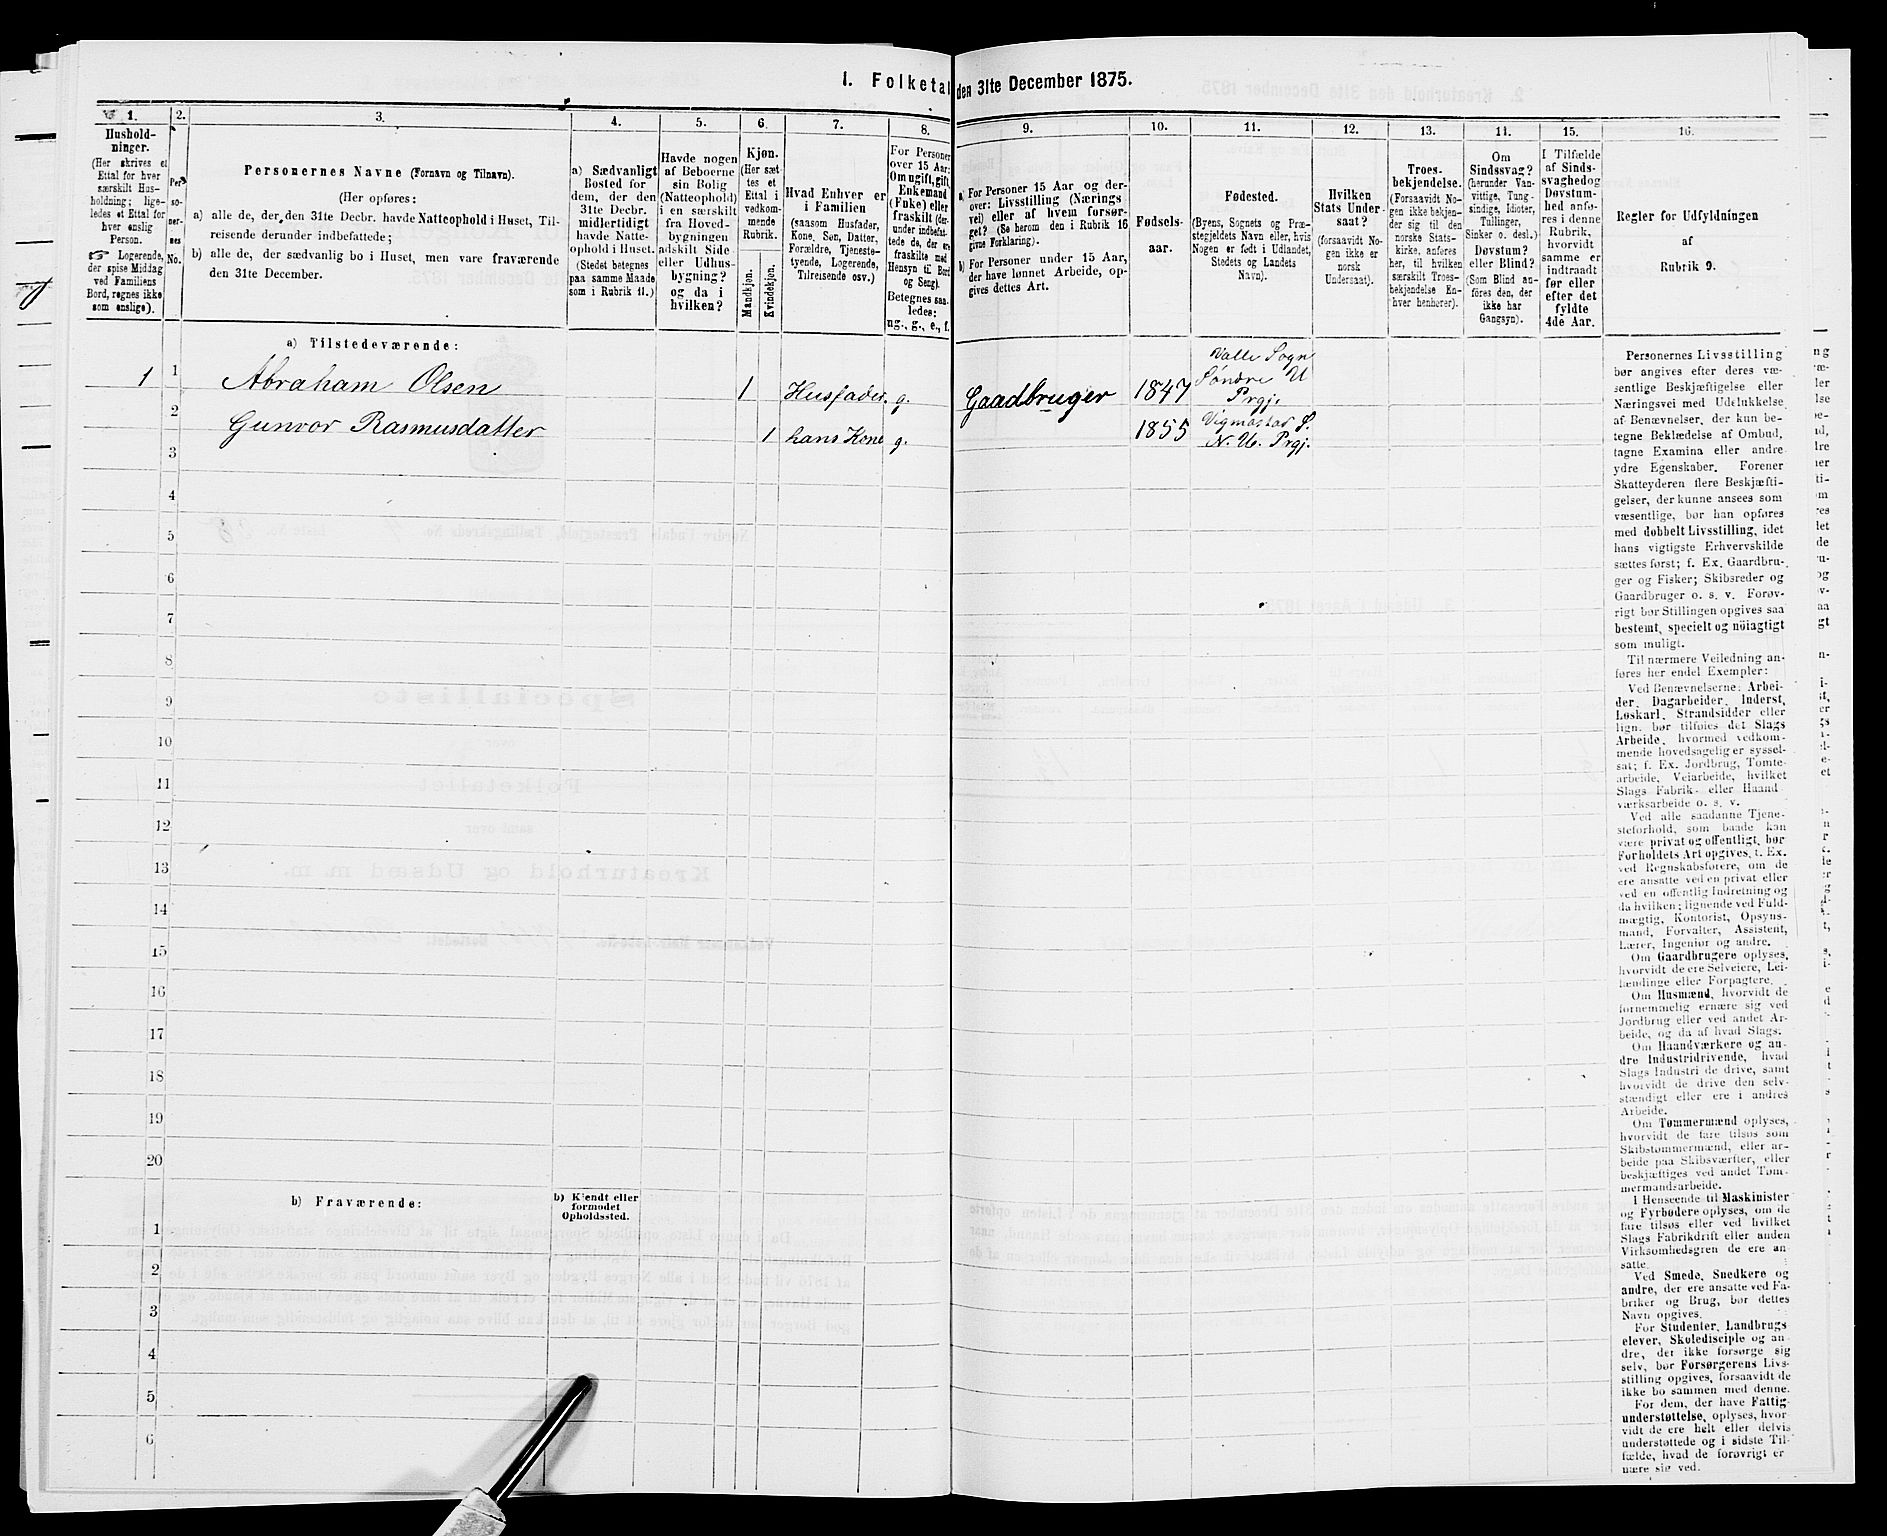 1. Folketal den 31te December 1875.
1.
Hushold-
ninger.
(Her skrives et
Ettal for hver
særskilt Hus-
holdning; lige-
ledes et Ettal for
hver enslig
Person.
☞ Logerende,
der spise Middag
ved Familiens
Bord, regnes ikke
som enslige).
2.
Per-
so-
ner-
nes
No.
3.
Personernes Navne (Fornavn og Tilnavn).
(Her opføres:
a) alle de, der den 31te Decbr. havde Natteophold i Huset, Til-
reisende derunder indbefattede;
b) alle de, der sædvanlig bo i Huset, men vare fraværende
den 31te December.
4.
a) Sædvanligt
Bosted for
dem, der den
31te Decbr.
midlertidigt
havde Natte-
ophold i Huset.
(Stedet betegnes
paa samme Maade
som i Rubrik 11.)
5.
Havde nogen
af Beboerne
sin Bolig
(Natteophold)
i en særskilt
fra Hoved-
bygningen
adskilt Side
eller Udhus-
bygning?
og da i
hvilken?
6.
Kjøn.
(Her sæt-
tes et
Ettal i
vedkom-
mende
Rubrik.
Mandkjøn.
Kvindekjøn.
7.
Hvad Enhver er
i Familien
(saasom Husfader,
Kone, Søn, Datter,
Forældre, Tjeneste-
tyende, Logerende,
Tilreisende osv.)
8.
For Personer
over 15 Aar:
Om ugift, gift,
Enkemand
(Enke) eller
fraskilt (der-
under indbefat-
tede de, der ere
fraskilte med
Hensyn til Bord
og Seng).
Betegnes saa-
ledes:
ug., g., e., f.
9.
a) For Personer 15 Aar og der-
over: Livsstilling (Nærings
vei) eller af hvem forsør-
get? (Se herom den i Rubrik 16
givne Forklaring).
b) For Personer under 15 Aar,
der have lønnet Arbeide, op-
gives dettes Art.
10.
Fødsels-
aar.
11.
Fødested.
(Byens, Sognets og Præ-
stegjeldets Navn eller, hvis
Nogen er født i Udlandet,
Stedets og Landets
Navn).
12.
Hvilken
Stats Under-
saat?
(forsaavidt No-
gen ikke er
norsk
Undersaat).
13.
Troes-
bekjendelse.
(Forsaavidt No-
gen ikke bekjen-
der sig til den
norske Stats-
kirke, anføres
her, til hvilken
særskilt Troes-
bekjendelse En-
hver henhører).
14.
Om
Sindssvag?
(herunder Van-
vittige, Tung-
sindige, Idioter,
Tullinger,
Sinker o. desl.)
Døvstum?
eller Blind?
(Som Blind an-
føres den, der
ikke har
Gangsyn).
15.
I Tilfælde
af Sinds-
svaghed og
Døvstum-
hed anfø-
res i denne
Rubrik,
hvorvidt
samme er
indtraadt
før eller
efter det
fyldte
4de Aar.
16.
Regler for Udfyldningen
af
Rubrik 9.
a) Tilstedeværende:
1 1 Abraham Olsen 1 Husfader. g. Gaadbruger 1847 Valle Sogn
Søndre U
Prgj.
2 Gunvor Rasmusdatter 1 hans Kone g. 1855 Vigmostad S.
N. U. Prgj.
3
4
5
6
7
8
9
10
11
12
13
14
15
16
17
18
19
20
b) Fraværende:
b) Kjendt eller
formodet
Opholdssted.
1
2
3
4
5
6
Personernes Livsstilling
bør angives efter deres væ-
sentlige Beskjæftigelse eller
Næringsvei med Udelukkelse
af Benævnelser, der kun be-
tegne Beklædelse af Ombud,
tagne Examina eller andre
ydre Egenskaber. Forener
Skatteyderen flere Beskjæfti-
gelser, der kunne ansees som
væsentlige, bør han opføres
med dobbelt Livsstilling, idet
hans vigtigste Erhvervskilde
sættes først; f. Ex. Gaardbru-
ger og Fisker; Skibsreder og
Gaardbruger o. s. v. Forøv-
rigt bør Stillingen opgives saa
bestemt, specielt og nöiagtigt
som muligt.
Til nærmere Veiledning an-
føres her endel Exempler:
Ved Benævnelserne: Arbei-
der, Dagarbeider, Inderst,
Løskarl, Strandsidder eller
lign. bør tilføies det Slags
Arbeide, hvormed vedkom-
mende hovedsagelig er syssel-
sat; f. Ex. Jordbrug, Tomte-
arbeide, Veiarbeide, hvilket
Slags Fabrik- eller Haand
værksarbeide o. s. v.
Ved alle saadanne Tjene-
steforhold, som baade kan
være privat og offentligt, bør
Forholdets Art opgives, t. Ex.
ved Regnskabsførere, om de
ere ansatte ved en privat eller
ved en offentlig Indretning og
da hvilken; lignende ved Fuld-
mægtig, Kontorist, Opsyns-
mand, Forvalter, Assistent,
Lærer, Ingeniør og andre.
Om Gaardbrugere oplyses,
hvorvidt de ere Selveiere, Lei-
lændinge eller Forpagtere.
Om Husmænd, hvorvidt de
fornemmelig ernære sig ved
Jordbrug eller ved andet Ar-
beide, og da af hvad Slags.
Om Haandværkere og an-
dre Industridrivende, hvad
Slags Industri de drive, samt
hvorvidt de drive den selv-
stændigt eller ere i andres
Arbeide.
Om Tømmermænd oplyses,
hvorvidt de fare tilsøs som
Skibstømmermænd, eller ar-
beide paa Skibsværfter, eller
beskjæftiges ved andet Tøm-
mermandsarbeide.
I Henseende til Maskinister
og Fyrbødere oplyses, om de
fare tilsøs eller ved hvilket
Slags Fabrikdrift eller anden
Virksomhedsgren de ere an-
satte.
Ved Smede, Snedkere og
andre, der ere ansatte ved Fa-
briker og Brug, bør dettes
Navn opgives.
For Studenter, Landbrugs
elever, Skoledisciple og an-
dre, der ikke forsørge sig
selv, bør Forsørgerens Livs-
stilling opgives, forsaavidt de
ikke bo sammen med denne.
For dem, der have Fattig-
understøttelse, oplyses, hvor-
vidt de ere helt eller delvis
understøttede og i sidste Til-
fælde, hvad de forøvrigt er
nære sig ved.